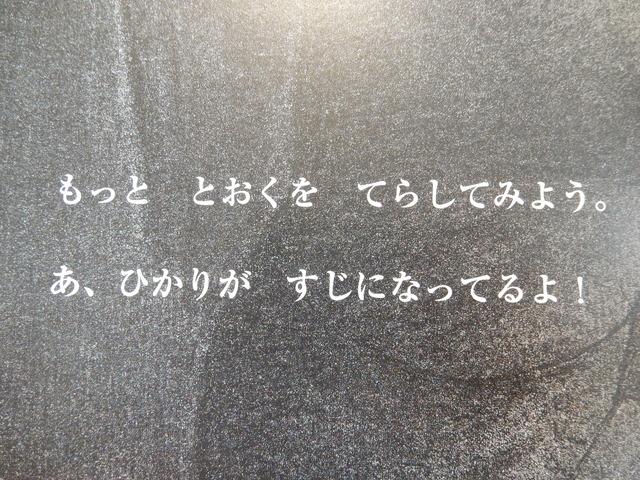 もっと　とおくを　てらしてみよう。
あ、ひかりが　すじになってるよ！